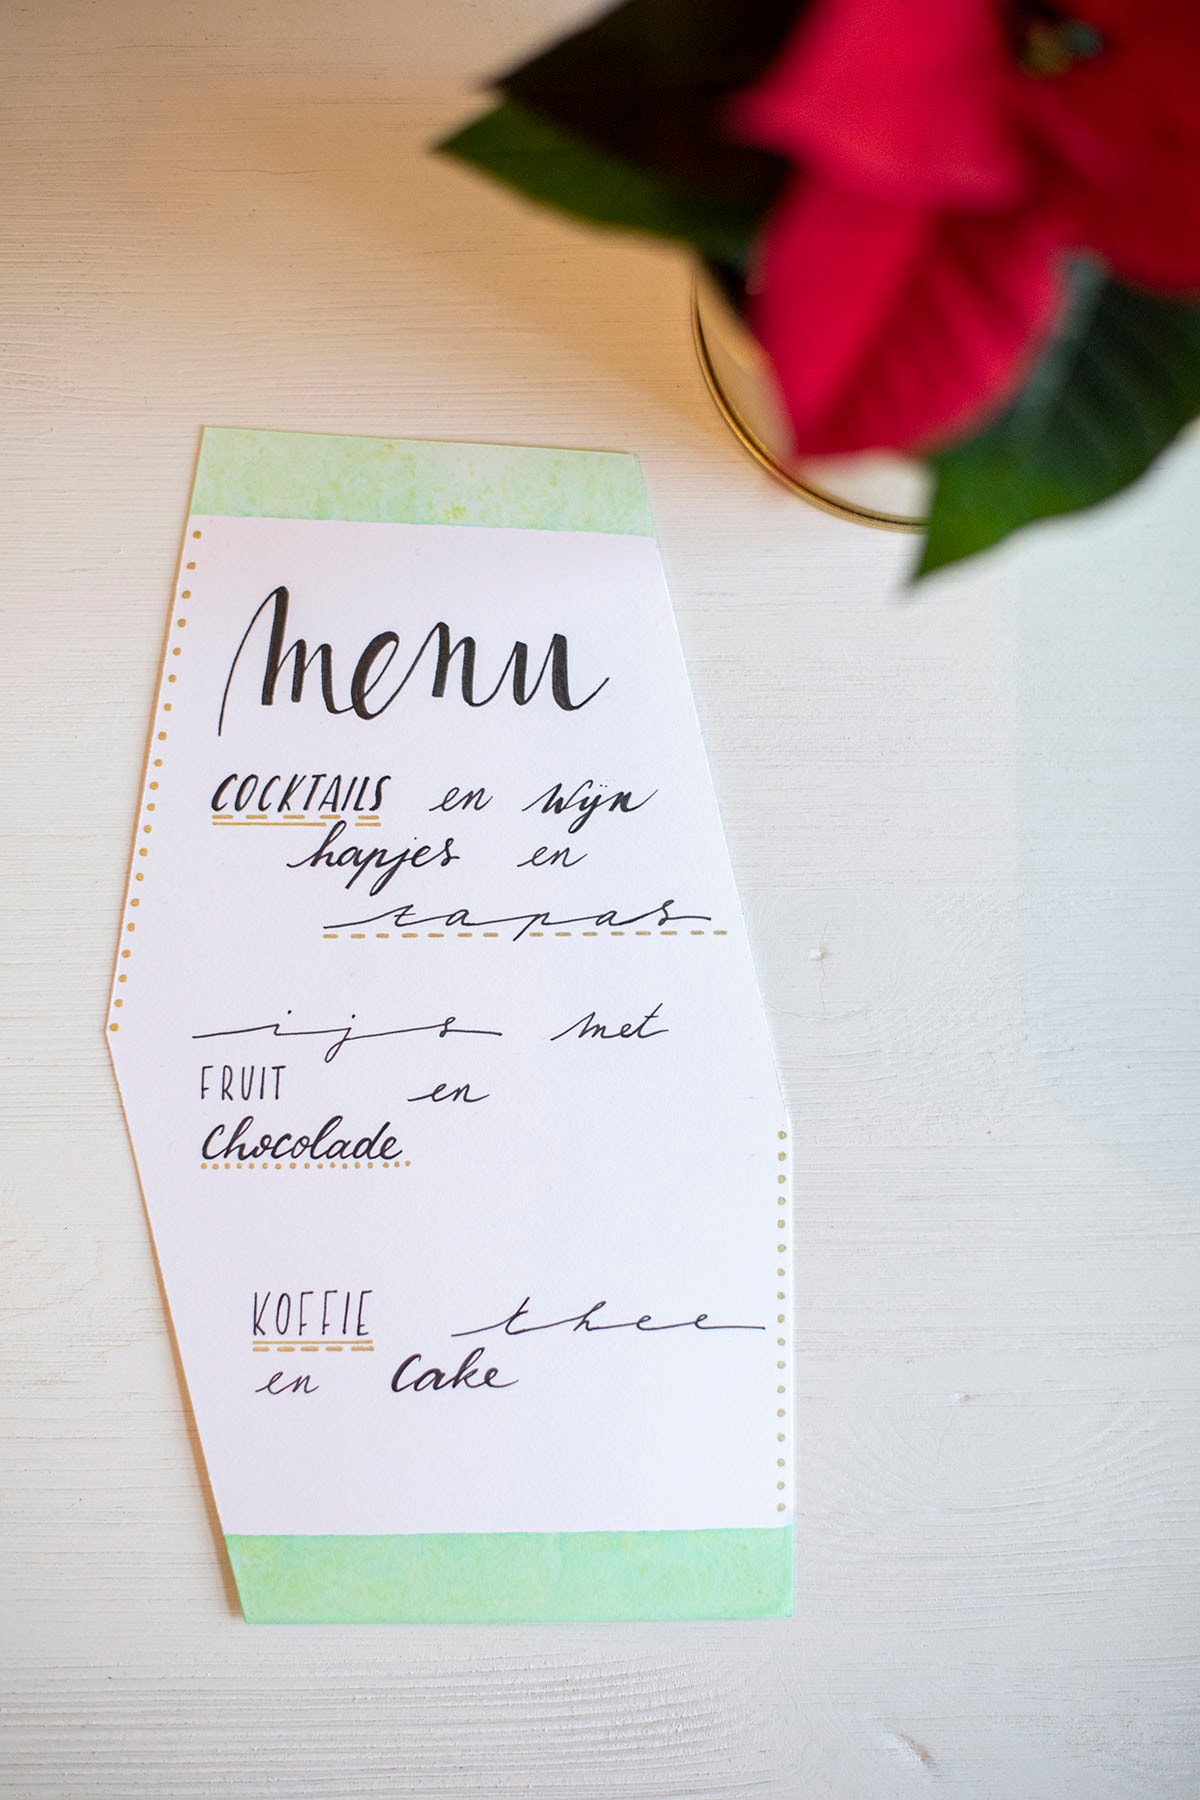 menu
COCKTAILS en wijn
hapjes en
tapas
ijs met
FRUIT en
chocolade
KOFFIE thee
en cake